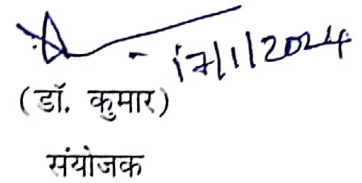 - 17/1/2024
(डॉ. कुमार)
संयोजक